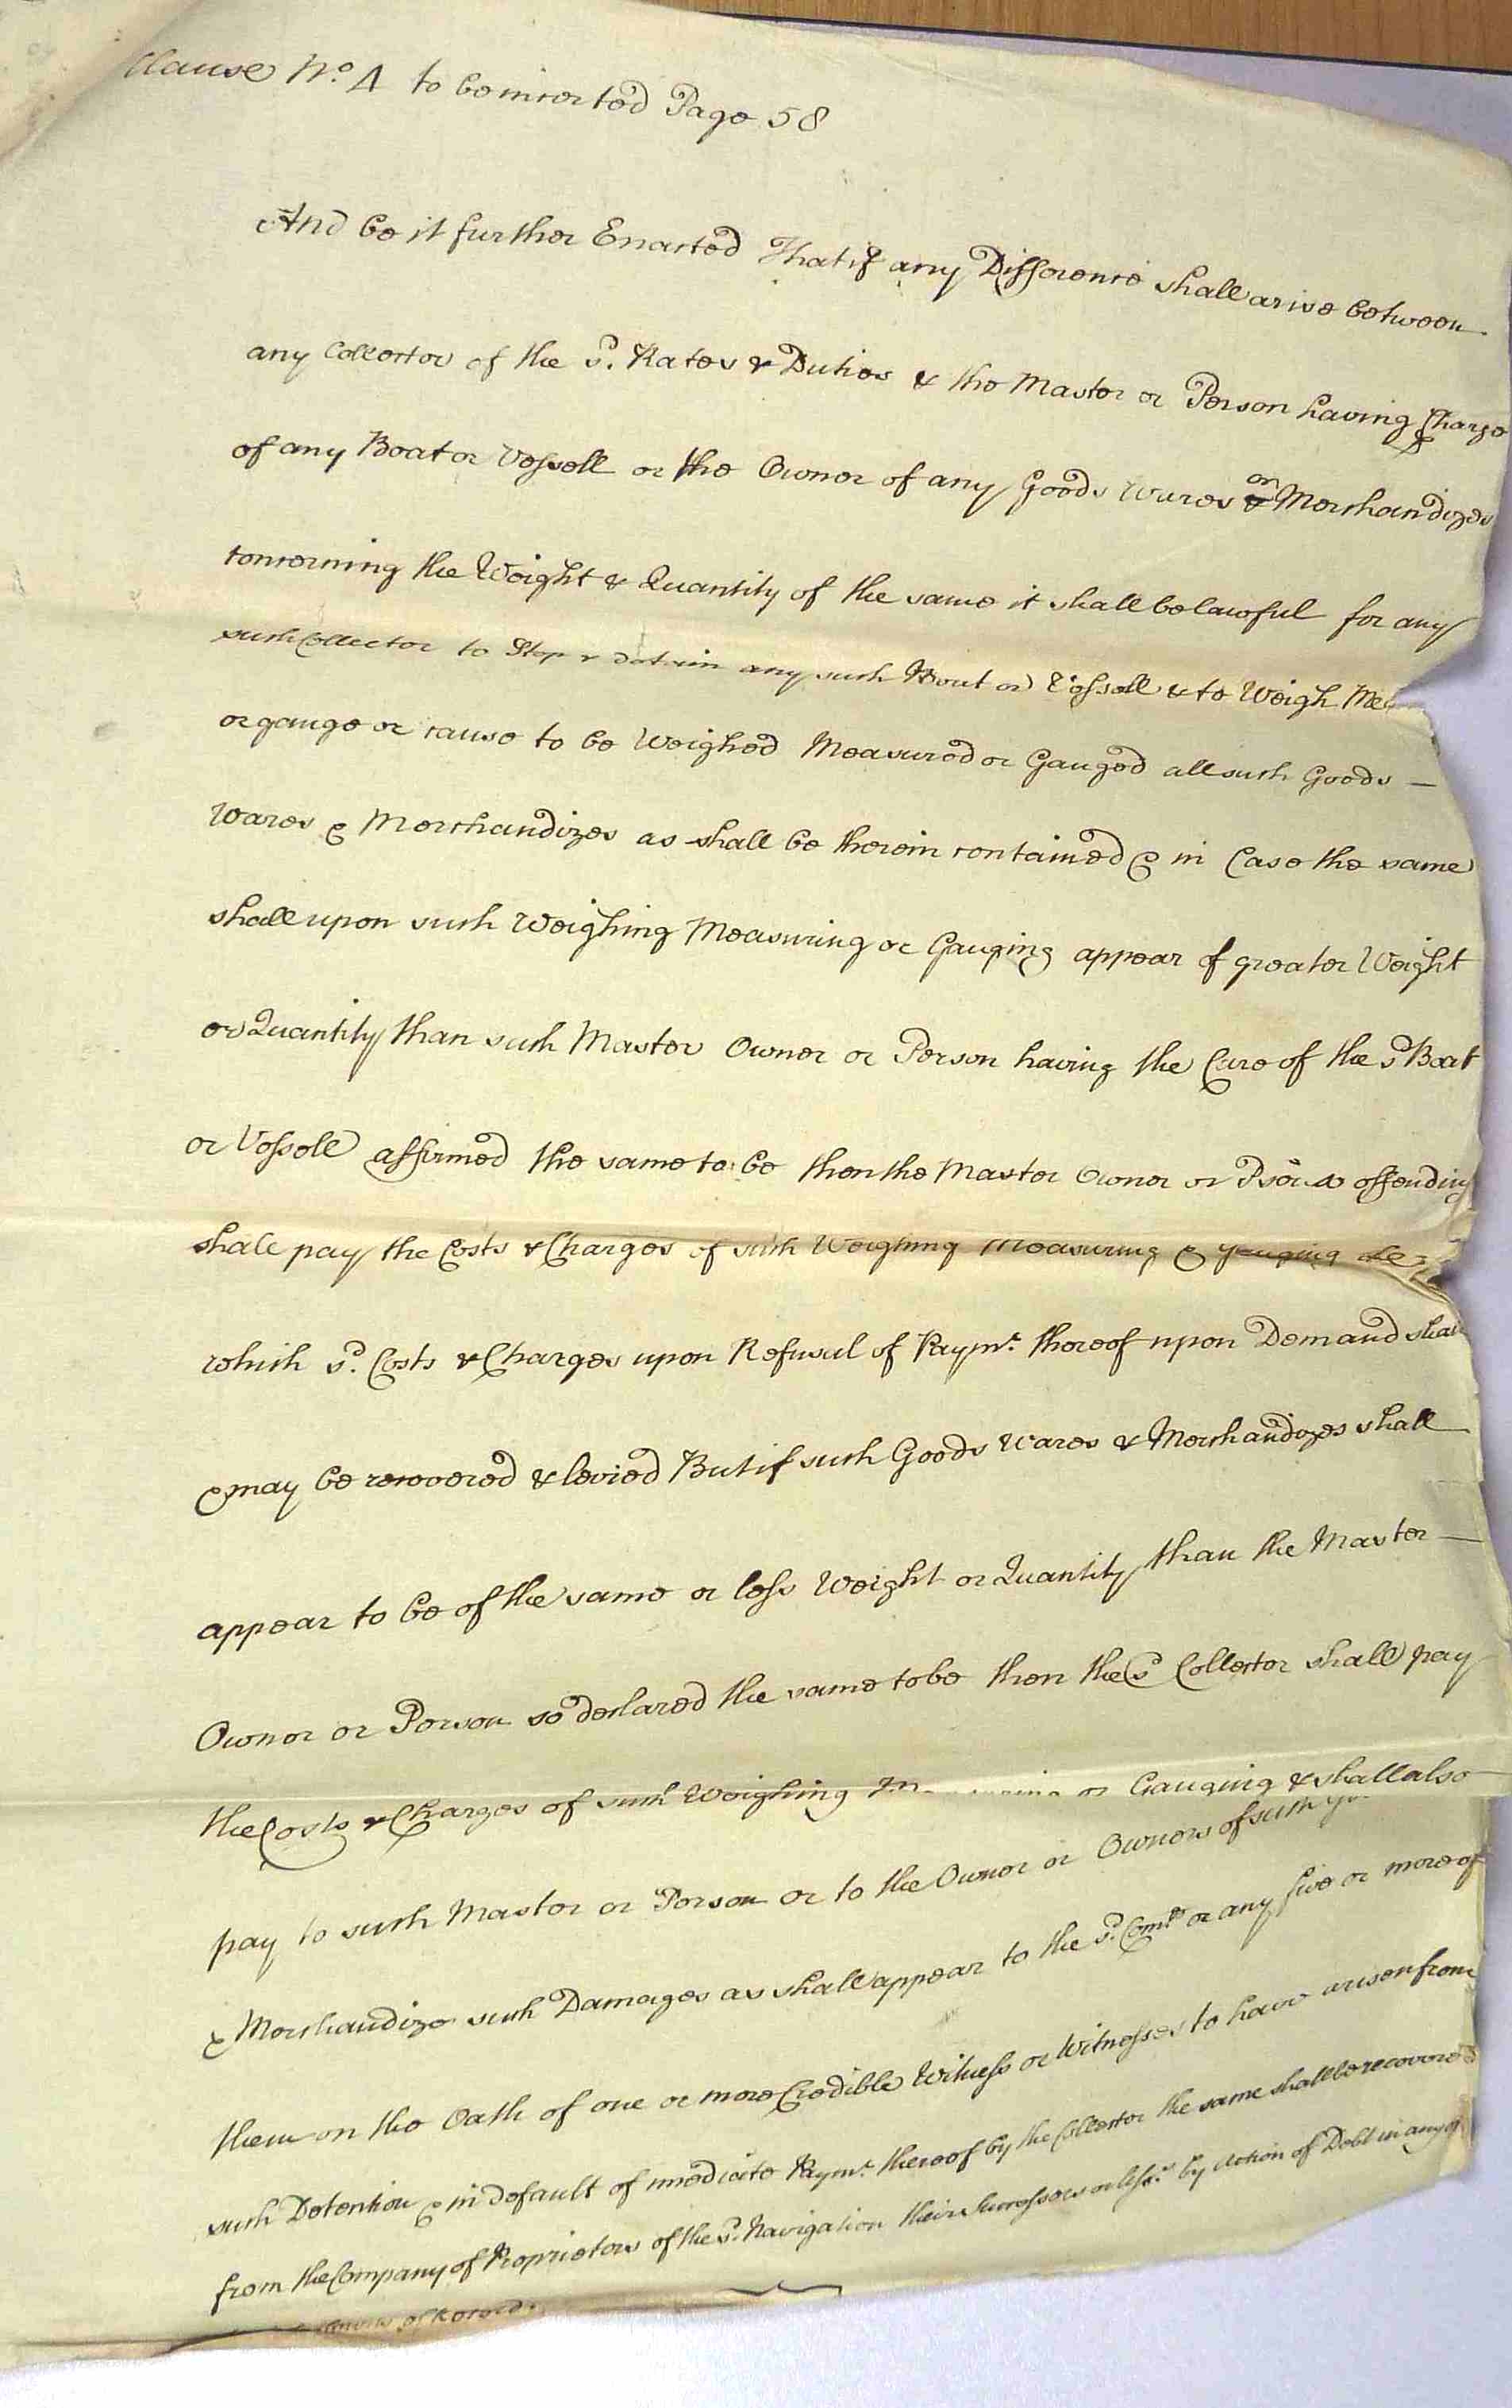 Clause No. 4 to be inserted Page 58
And be it further Enacted That if any Difference shall arise between
any Collector of the sd. Rates & Duties & the Master or Person having Charge
of any Boat or Vessell or the Owner of any Goods Wares or & Merchandizes
concerning the Weight & Quantity of the same it shall be lawful for any
such Collector to Stop & detain any such Boat or Vessell & to Weigh Mea
or gauge or cause to be Weighed Measured or Gauged all such Goods —
Wares & Merchandizes as shall be therein contained & in Case the same
shall upon such Weighing Measuring or Gauging appear of greater Weight
or Quantity than such Master Owner or Person having the Care of the sd Boat
or Vessell affirmed the same to be then the Master Owner or Pson so offending
shall pay the Costs & Charges of such Weighing Measuring & gauging
which sd. Costs & Charges upon Refusal of Paymt. thereof upon Demand shall
& may be recovered & levied But if such Goods Wares & Merchandizes shall
appear to be of the same or less Weight or Quantity than the Master —
Owner or Person so declared the same to be then the sd Collector shall pay
the Costs & Charges of such Weighing Measuring or Gauging & shall also
pay to such Master or Person or to the Owner or Owners of such
& Merchandize such Damages as shall appear to the sd. Comrs or any five or more of
them on the Oath of one or more Credible Witness or Witnesses to have arisen from
such Detention & in default of imediate Paymt. thereof by the Collector the same shall be recovered
from the Company of Proprietors of the sd. Navigation their Successors or by Action of Debt in any of
of Record.